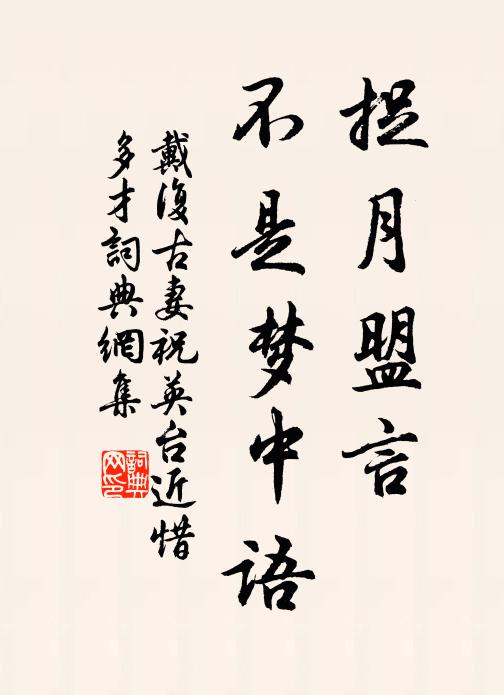 捉月盟言
不是梦中语
戴復古妻祝英台近惜
多才詞典網集
詞典
网印